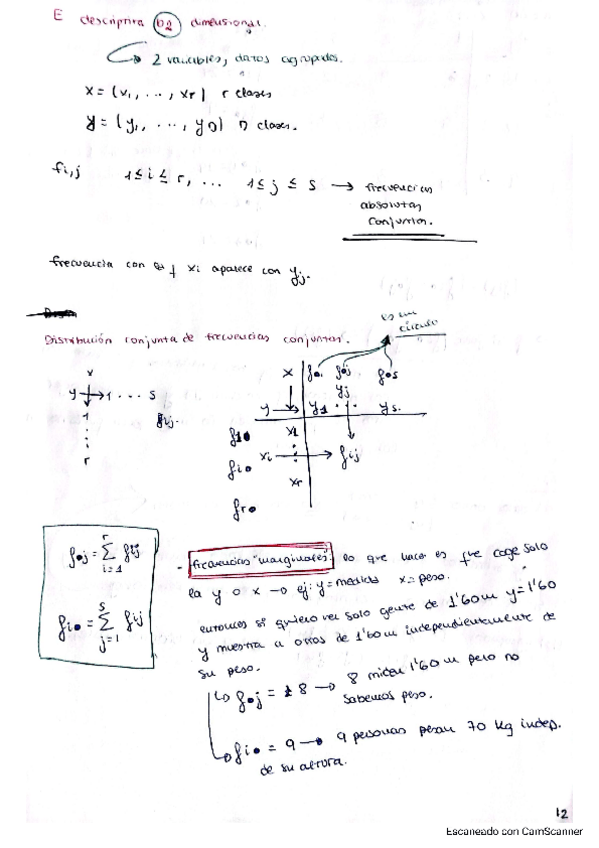 E descriptiva b2 dimensional.
2 variables, datos agrupados.
x = (x1, ..., xr) r clases
y = (y1, ..., y) n clases.
fi,j 1 ≤ i ≤ r, ... 1 ≤ j ≤ s → frecuencias
absolutas
conjuntas.
frecuencia con xi aparece con yj.
Distribución conjunta de frecuencias conjuntas.
es un
círculo
x
y → 1 ... s
1
r
fij.
x f•1 f•j f•s
yj
y → y1 ... ys.
f1• x1
fi• xi → fij
xr
fr•
f•j = Σ fij
i=1
r
fi• = Σ fij
j=1
s
- frecuencias "marginales": lo que hace es que coge solo
la y o x → ej: y = medida x = peso.
entonces si quiero ver solo gente de 1'60m y=1'60
y muestra a otros de 1'60m independientemente de
su peso.
f•j = 8 → 8 miden 1'60m pero no
sabemos peso.
fi• = 9 → 9 personas pesan 70 kg indep.
de su altura.
12
Escaneado con CamScanner